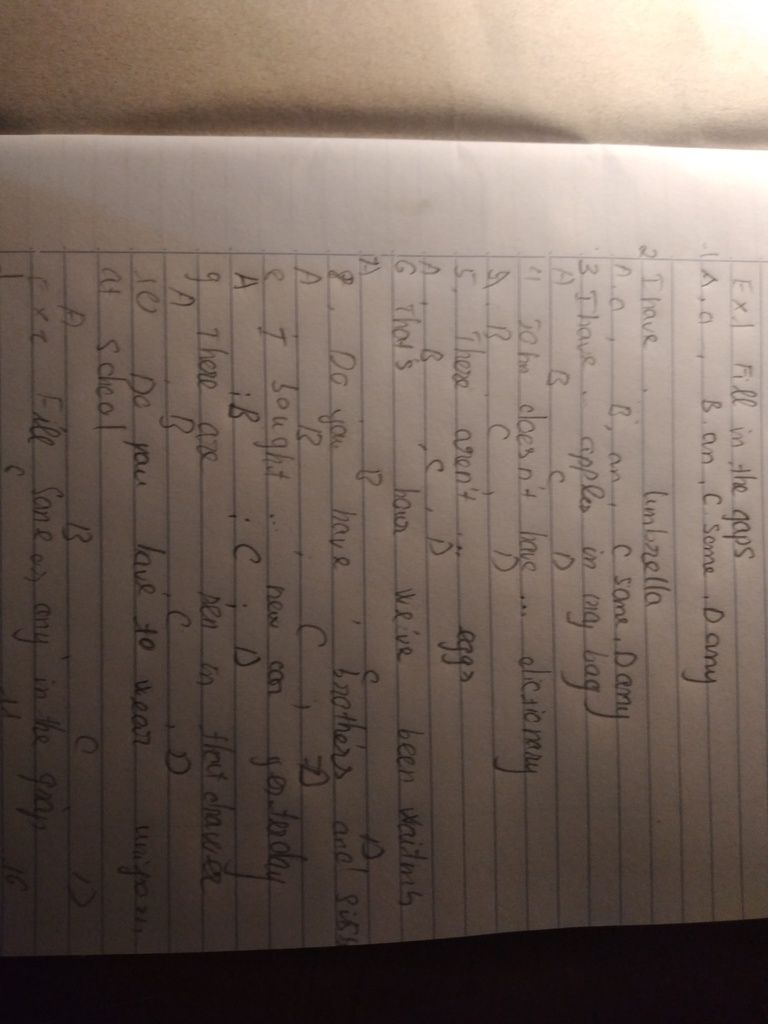 Ex.1 Fill in the gaps
1 A, a , B. an, C. some, D any
2 I have . umbrella
A. a , B, an, C some, D any
3 I have .. apples in my bag
A B C D
4 John doesn't have ... dicsionary
A. B C , D
5, There aren't ... eggs
A, B , C , D
6 That's hour we've been waiting
A B C D
8, Do you have , brothers and
A B , C , D
8 I bought ... new car yesterday
A , B , C , D
9 There are pen in that
A , B , C , D
10 Do you have to wear uniform
at school
A B C D
Ex 2 Fill some or any in the